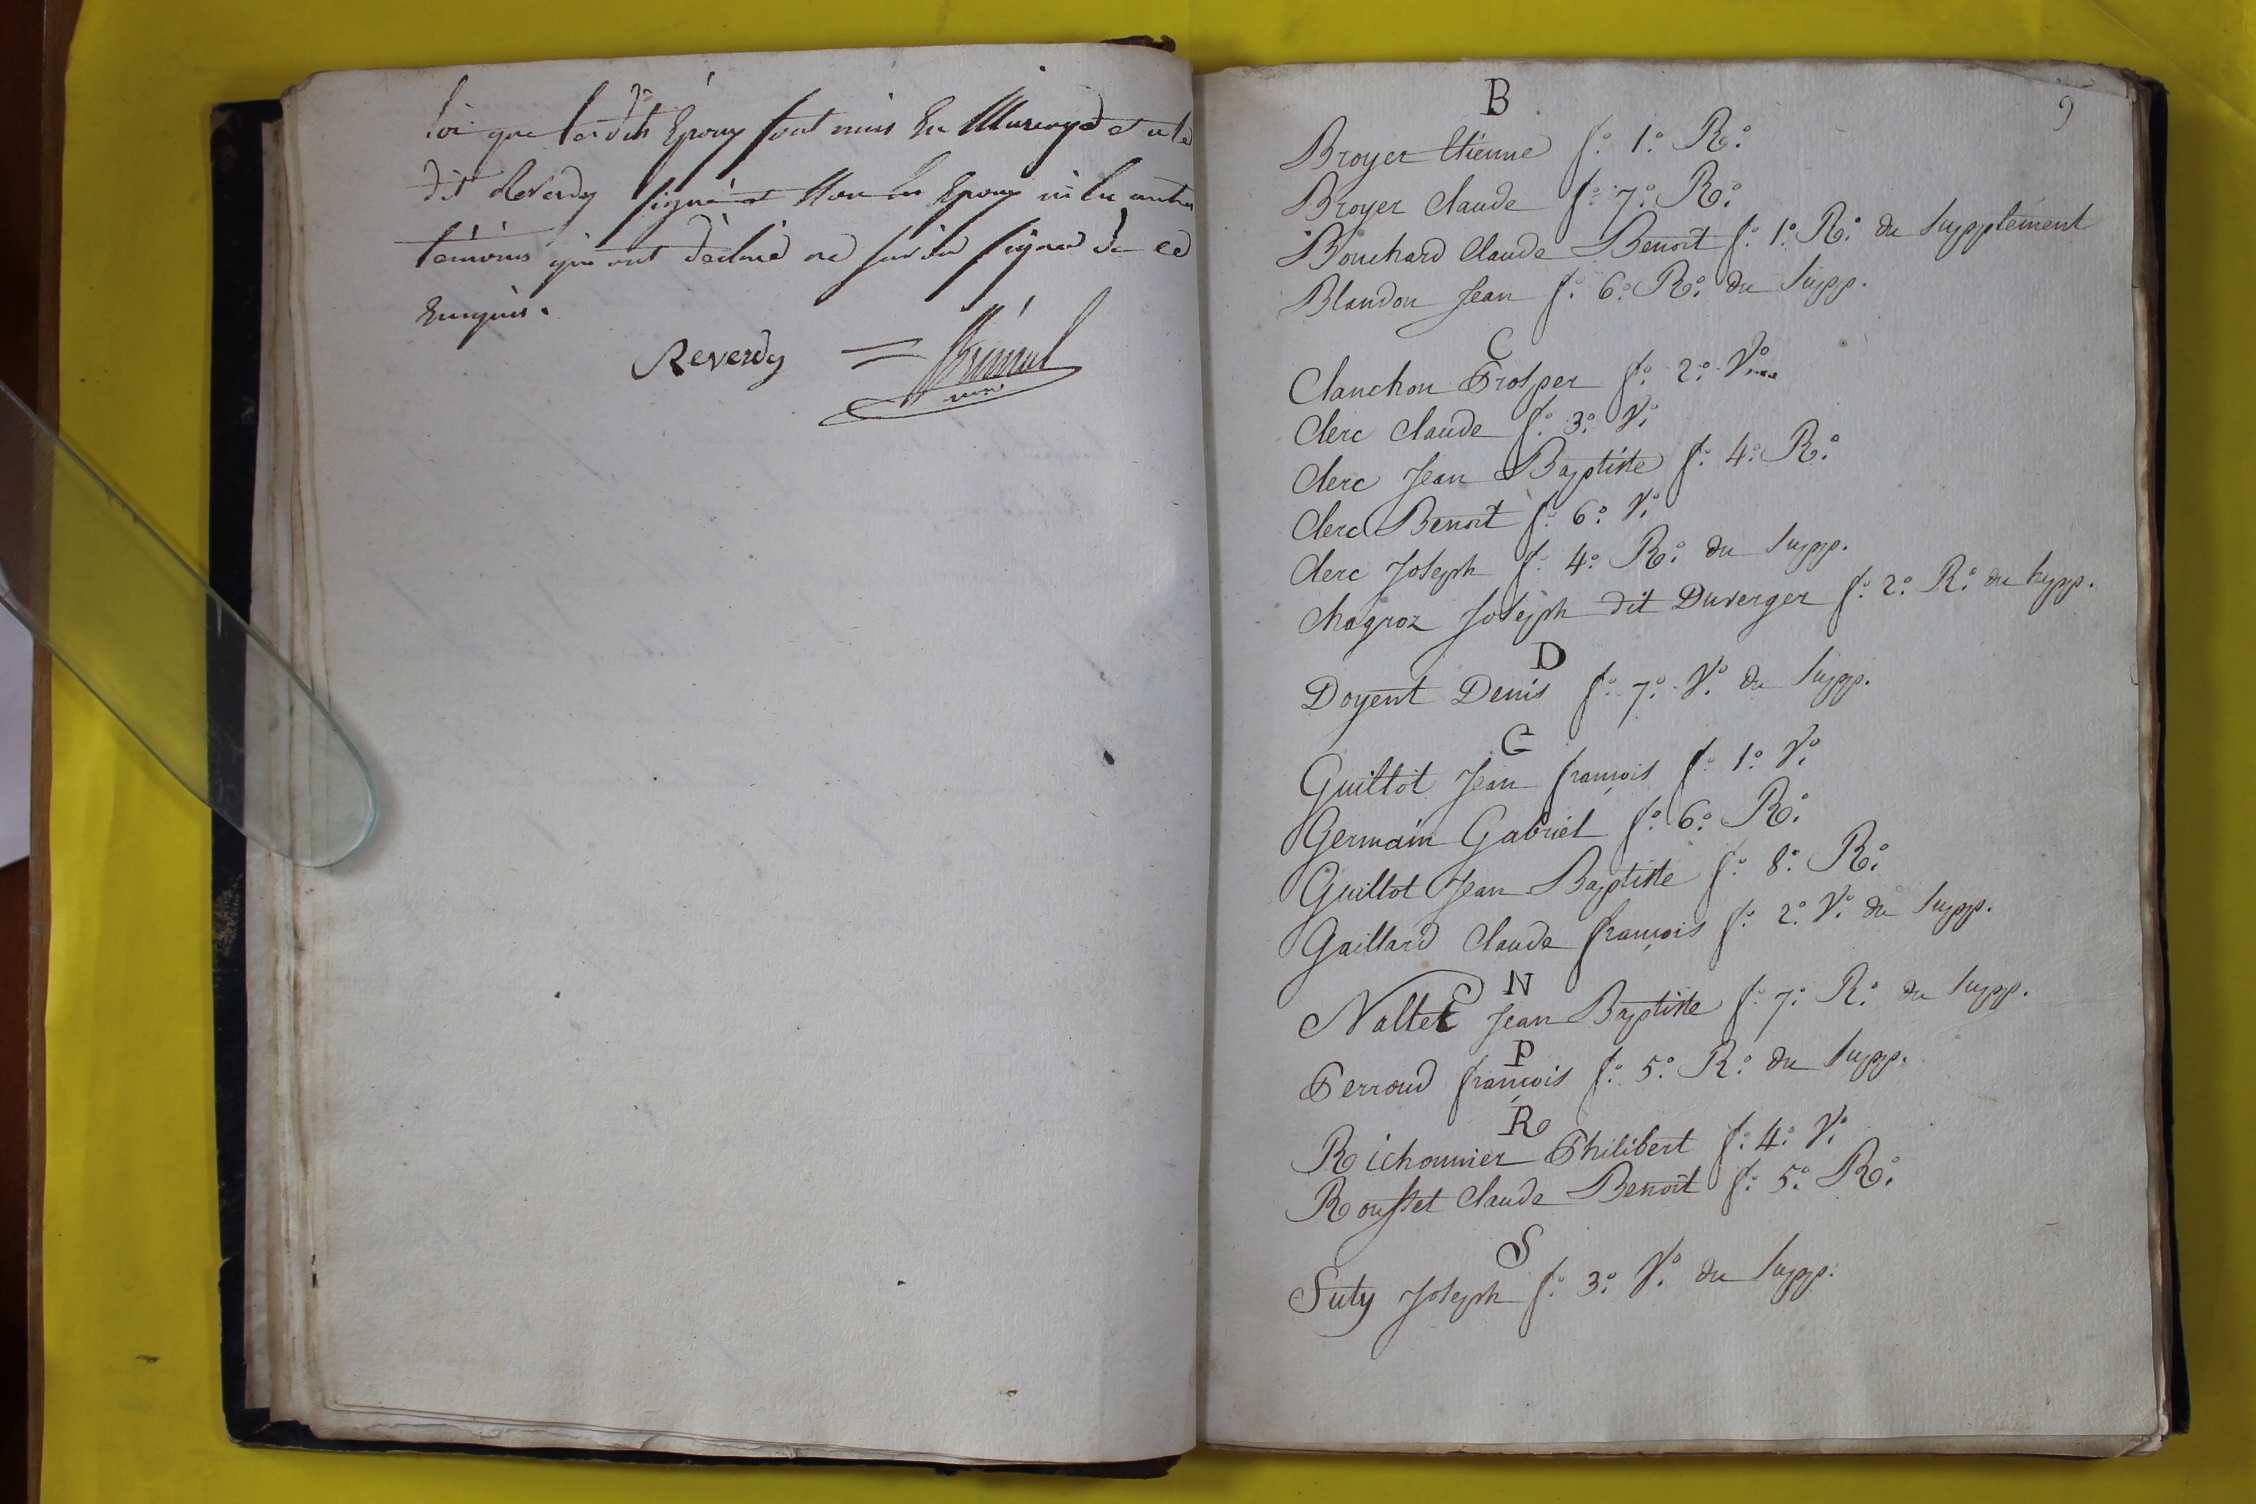 loi que lesdits Epoux sont unis En Mariage et a le
dit Reverdy signé et Non les Epoux ni les autres
témoins qui ont déclaré ne savoir signer de ce
Enquis.
Reverdy
9
B
Broyer Etienne f.º 1.º R.º
Broyer Claude f.º 7.º R.º
Bouchard Claude Benoit f.º 1.º R.º du Supplément
Blandon Jean f.º 6.º R.º du Supp.
C
Clanchon Prosper f.º 2.º V.º
Clerc Claude f.º 3.º V.º
Clerc Jean Baptiste f.º 4.º R.º
Clerc Benoit f.º 6.º V.º
Clerc Joseph f.º 4.º R.º du Supp.
Chagroz Joseph dit Duverger f.º 2.º R.º du Supp.
D
Doyent Denis f.º 7.º V.º du Supp.
G
Guillot Jean françois f.º 1.º V.º
Germain Gabriel f.º 6.º R.º
Guillot Jean Baptiste f.º 8.º R.º
Gaillard Claude françois f.º 2.º V.º du Supp.
N
Nallet Jean Baptiste f.º 7.º R.º du Supp.
P
Perroud françois f.º 5.º R.º du Supp.
R
Richonnier Philibert f.º 4.º V.º
Rousset Claude Benoit f.º 5.º R.º
S
Suty Joseph f.º 3.º V.º du Supp.